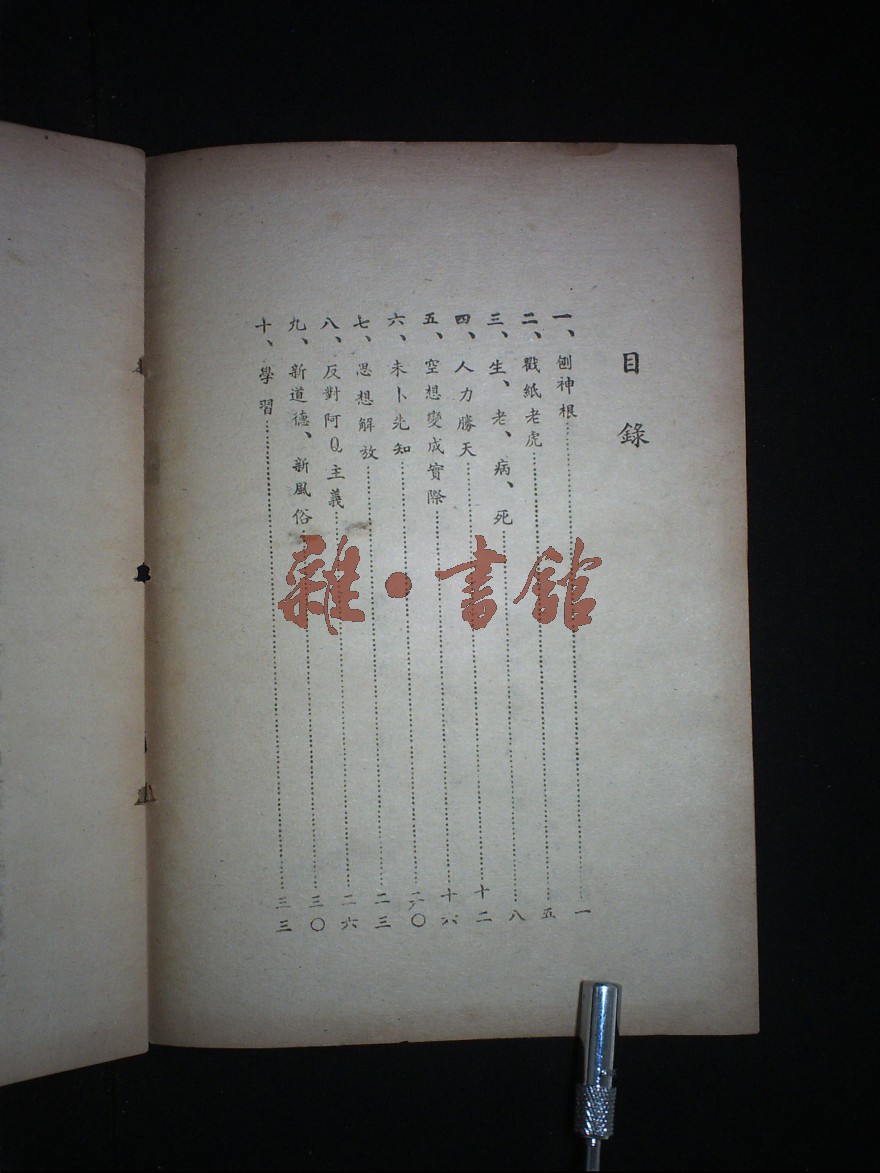 目錄
一、刨神根⋯⋯一
二、戳紙老虎⋯⋯五
三、生、老、病、死⋯⋯八
四、人力勝天⋯⋯十二
五、空想變成實際⋯⋯十六
六、未卜先知⋯⋯二〇
七、思想解放⋯⋯二三
八、反對阿Q主義⋯⋯二六
九、新道德、新風俗⋯⋯三〇
十、學習⋯⋯三三
雜·書館